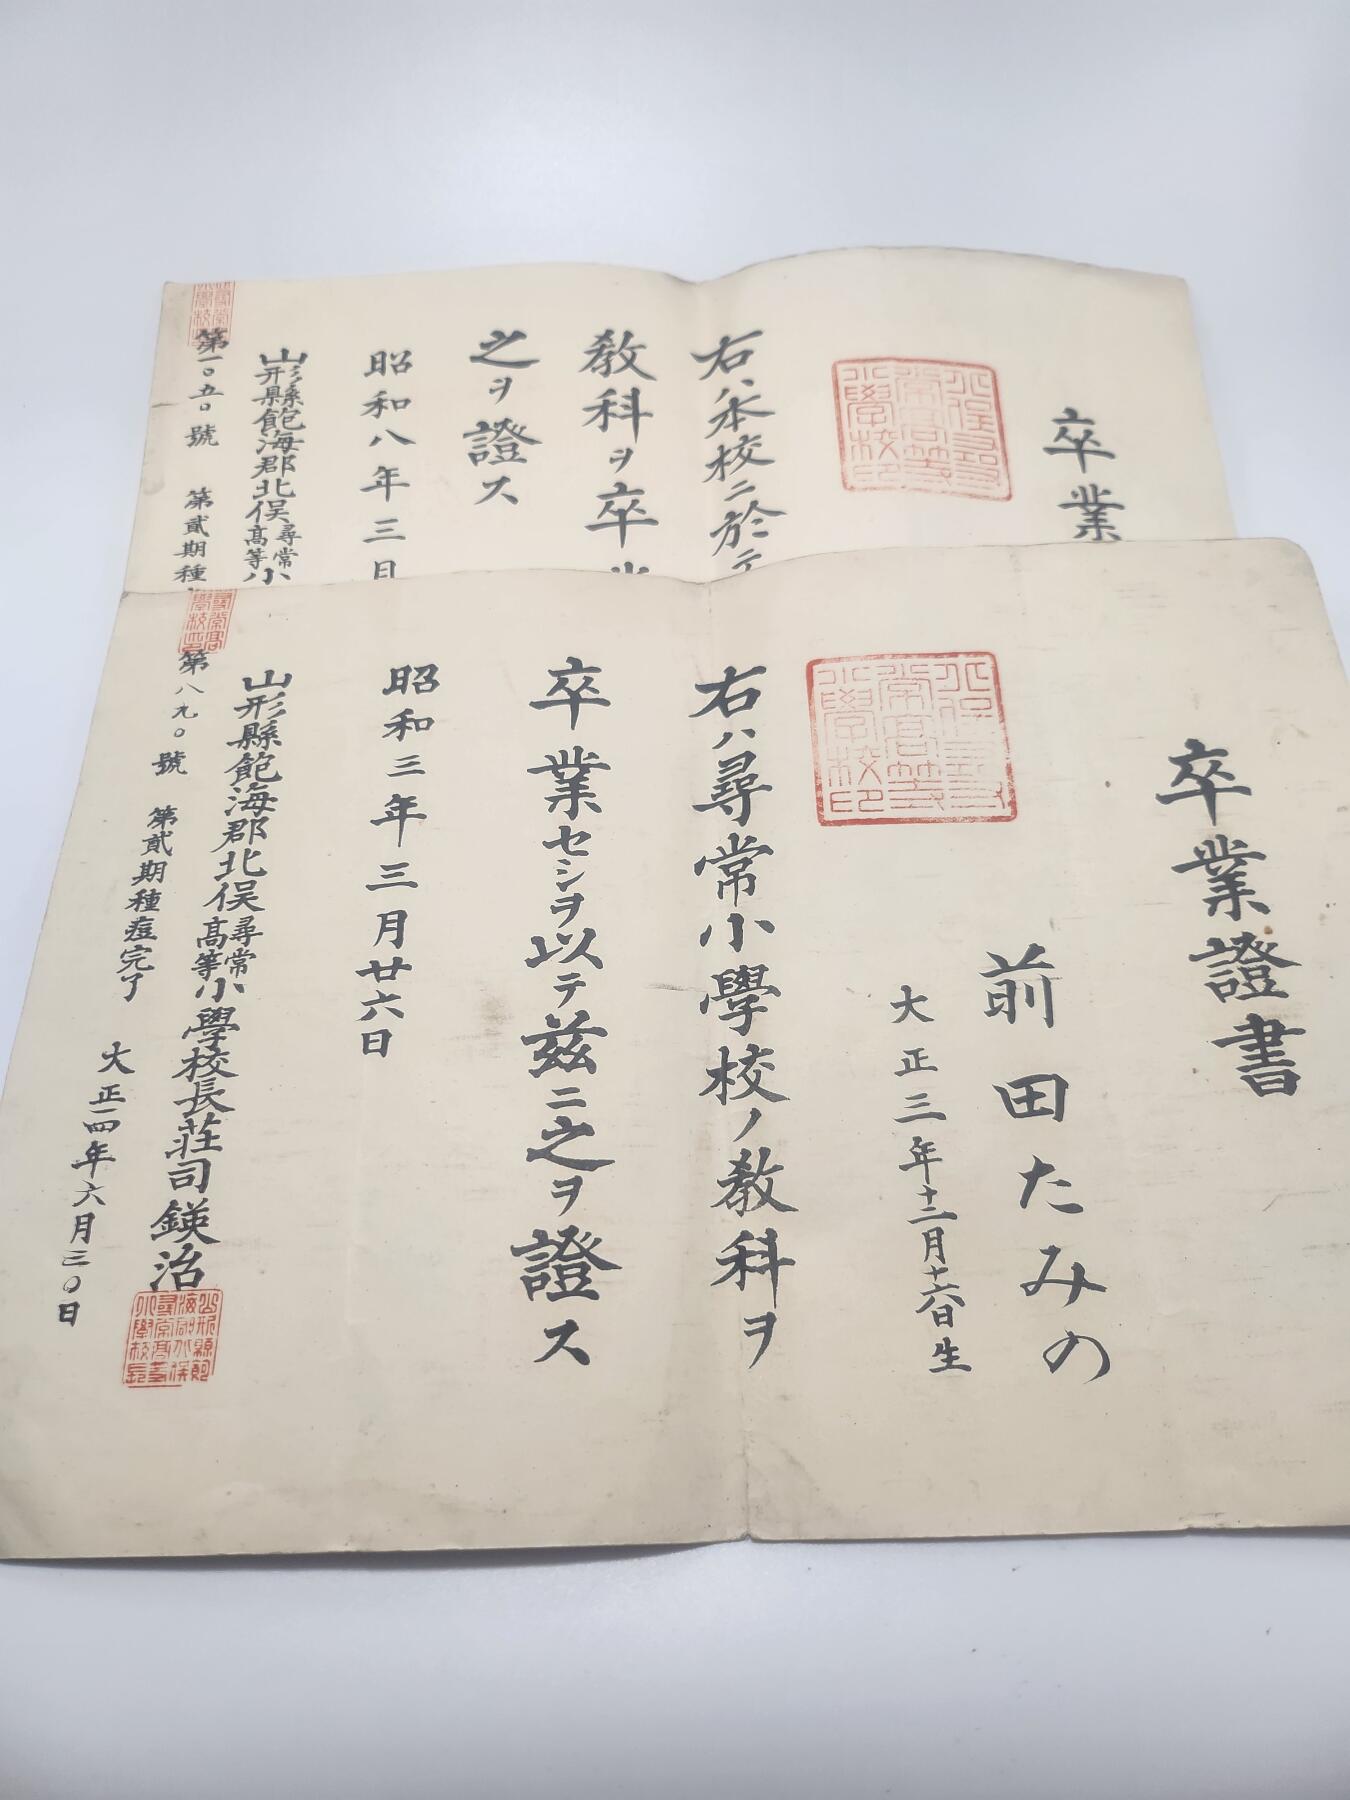 卒業證書
前田たみの
大正三年十二月十六日生
右ハ尋常小學校ノ教科ヲ
卒業セシヲ以テ茲ニ之ヲ證ス
昭和三年三月廿六日
山形縣飽海郡北俣尋常高等小學校長荘司鍈治
第八九〇號 第貳期種痘完了 大正一四年六月三〇日
卒業
右ハ本校ニ於テ
教科ヲ卒業
之ヲ證ス
昭和八年三月
山形縣飽海郡北俣尋常高等小
第一〇五〇號 第貳期種
北俣尋常高等小學校印
北俣尋常高等小學校印